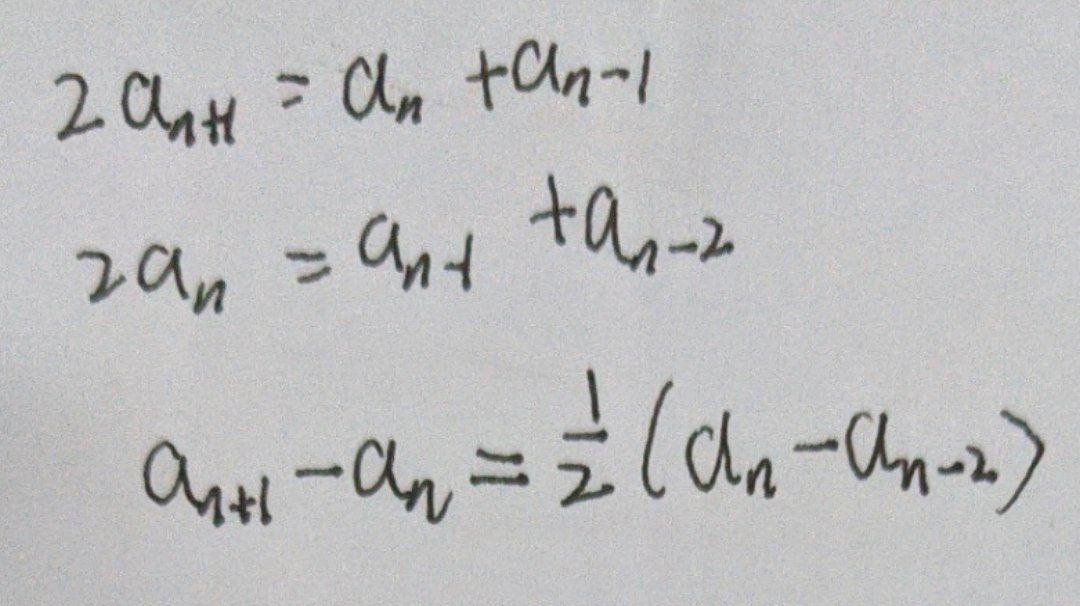 2a_{n+1} = a_n + a_{n-1}
2a_n = a_{n-1} + a_{n-2}
a_{n+1} - a_n = \frac{1}{2}(a_n - a_{n-2})